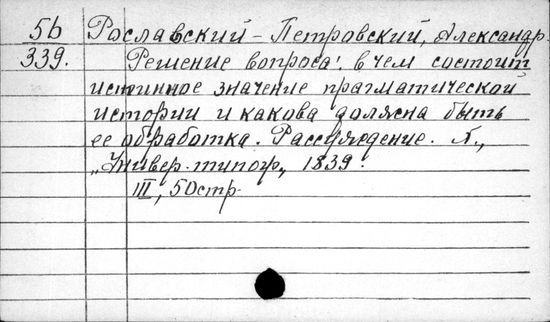 5б Рославский-Петровский, Александр.
339. Решение вопроса: в чем состоит
истинное значение прагматической
истории и какова должна быть
ее обработка. Рассуждение.
„Универ. типогр„, 1839.
III, 50стр.